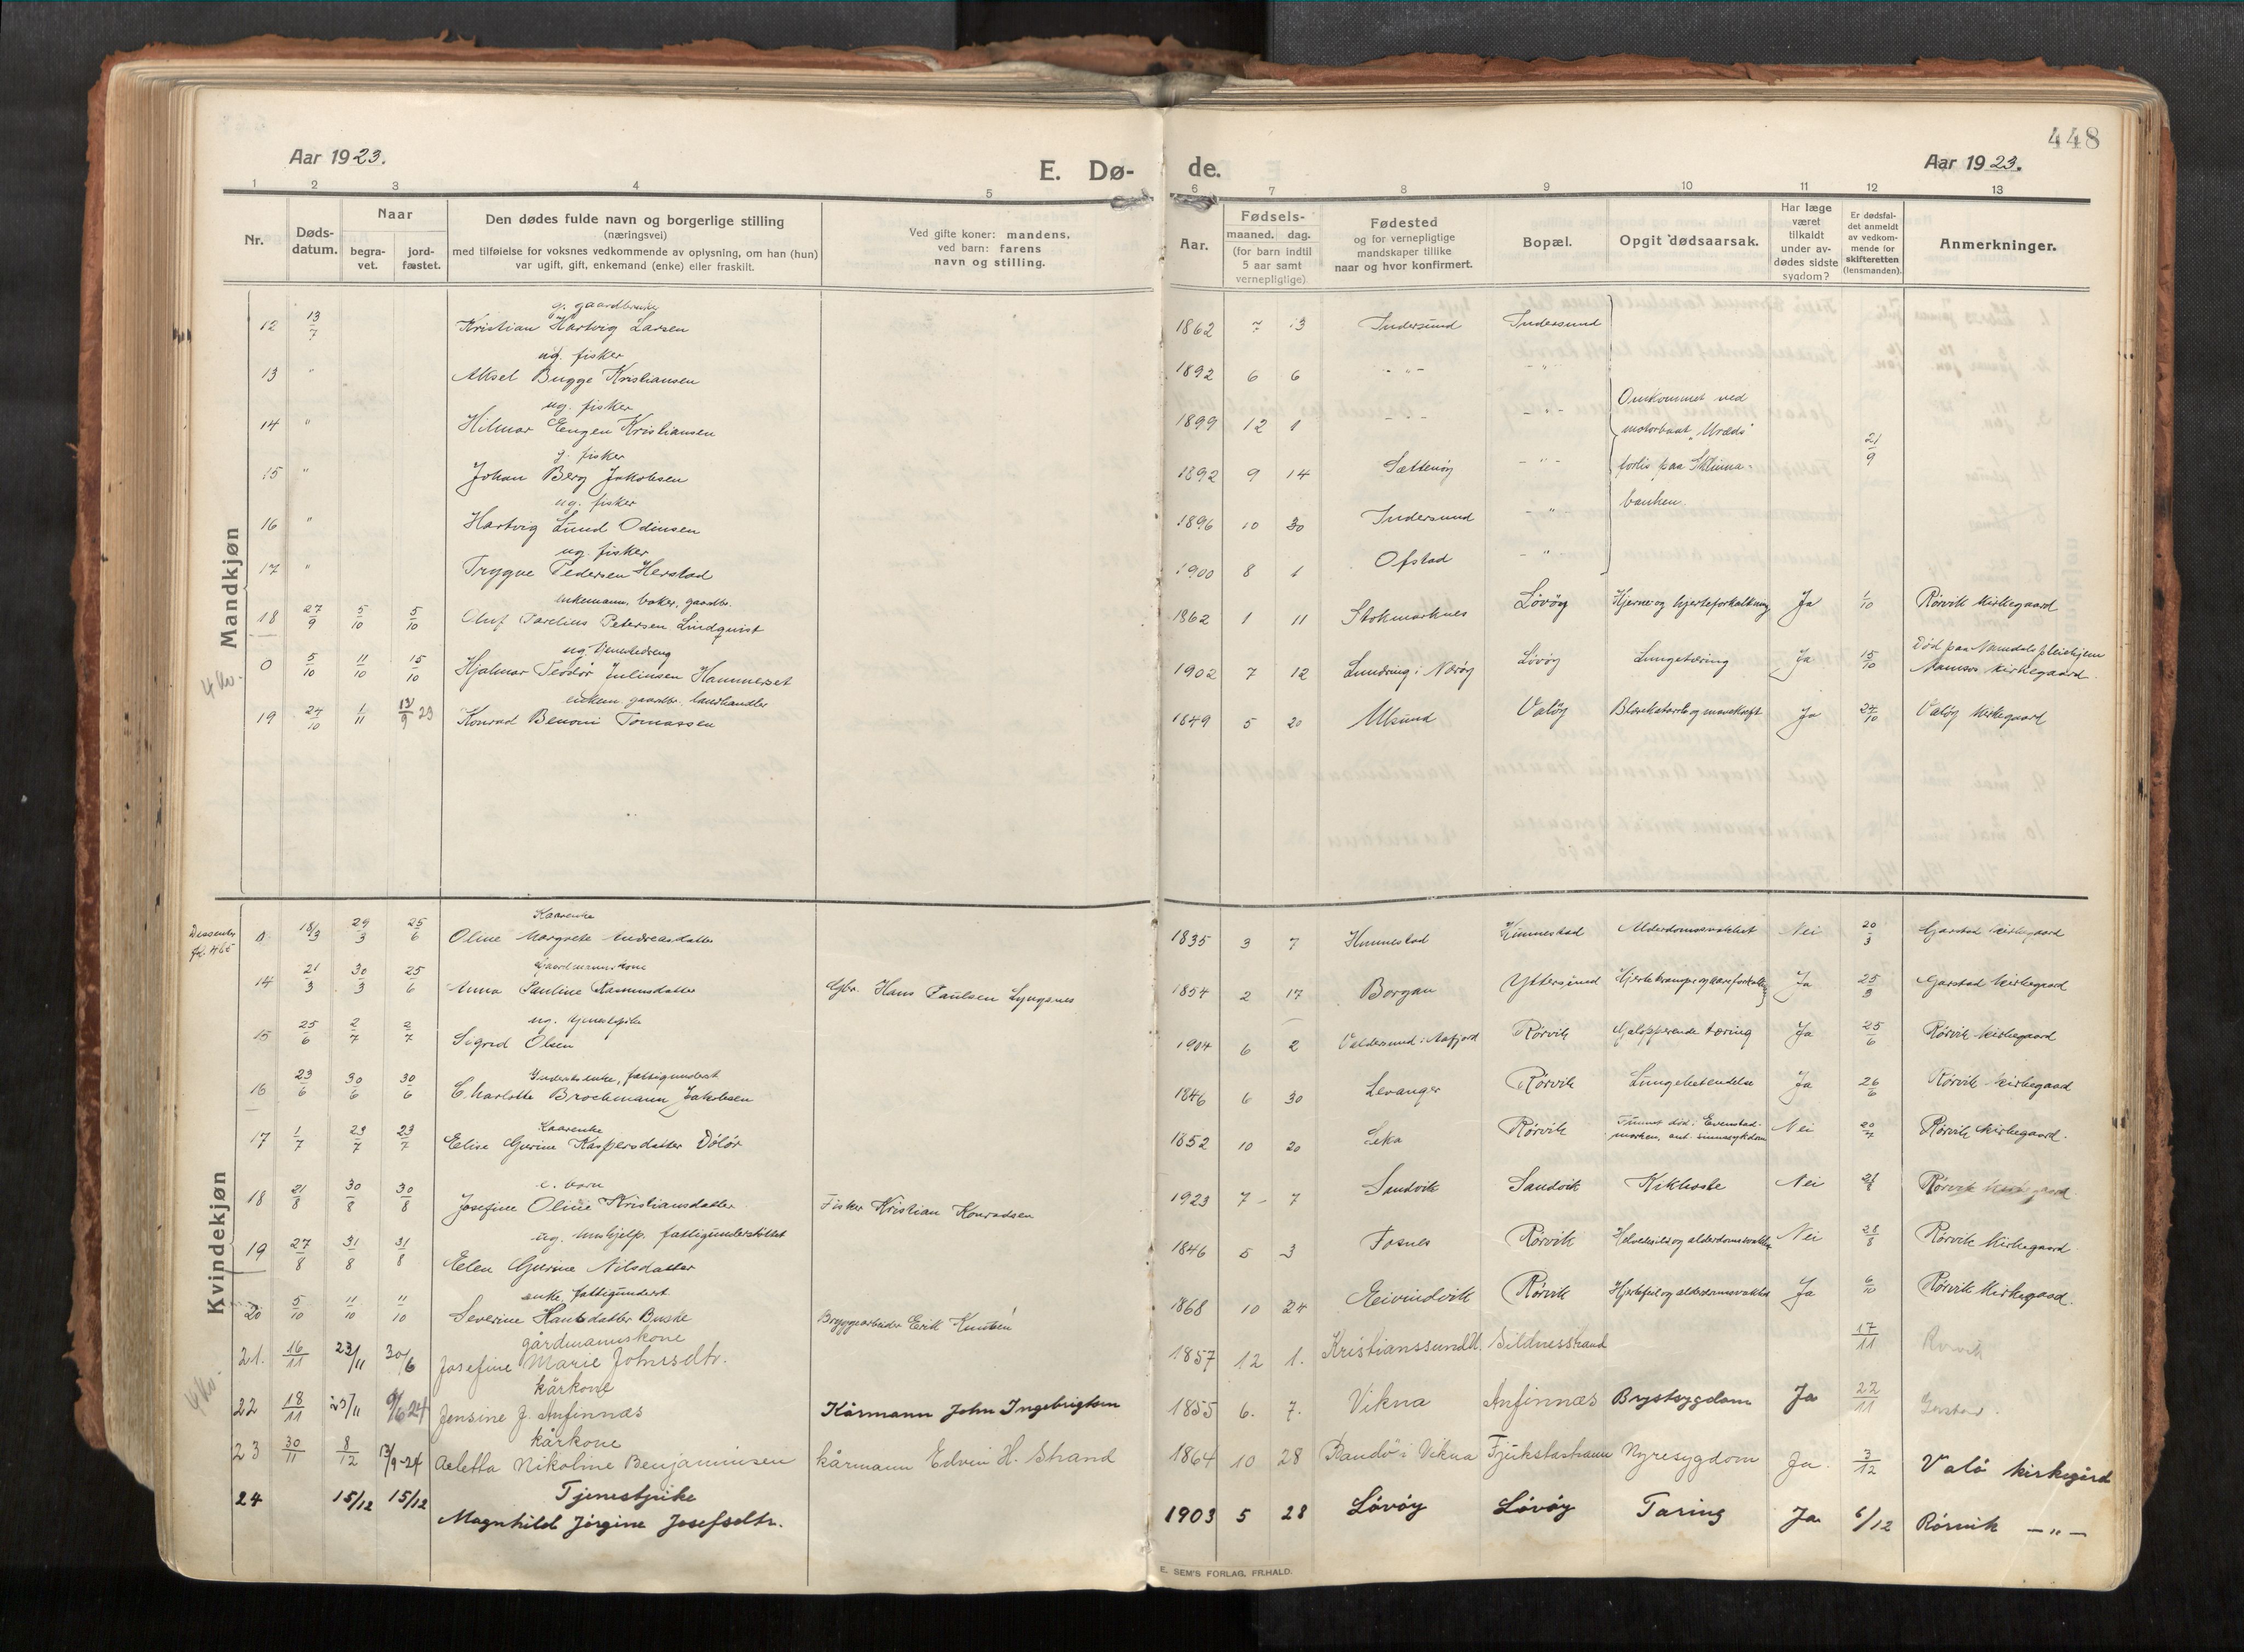 448
Aar 1923.
E. Dø-
de.
Aar 1923.
1 2 3 4 5 6 7 8 9 10 11 12 13
Nr.
Døds-
datum.
Naar
begra-
vet.
jord-
fæstet.
Den dødes fulde navn og borgerlige stilling
(næringsvei)
med tilføielse for voksnes vedkommende av oplysning, om han (hun)
var ugift, gift, enkemand (enke) eller fraskilt.
Ved gifte koner: mandens,
ved barn: farens
navn og stilling.
Aar.
Fødsels-
maaned. dag.
(for barn indtil
5 aar samt
vernepligtige)
Fødested
og for vernepligtige
mandskaper tillike
naar og hvor konfirmert.
Bopæl.
Opgit dødsaarsak.
Har læge
været
tilkaldt
under av-
dødes sidste
sygdom?
Er dødsfal-
det anmeldt
av vedkom-
mende for
skifteretten
(lensmanden).
Anmerkninger.
Mandkjøn
g. gaardbruke
12 13/7 Kristian Hartvig Larsen 1862 7 13 Indersund Indersund
ug. fisker
13 " Aksel Bugge Kristiansen 1892 6 6 - " - - " -
ug. fisker
14 " Hilmar Eugen Kristiansen 1899 12 1 - " - - " -
Omkommet ved
motorbaat "Uræds"
forlis paa Sklinna-
banken.
21/9
g. fisker
15 " Johan Berg Jakobsen 1892 9 14 Sættenøy - " -
ug. fisker
16 " Hartvig Lund Odinsen 1896 10 30 Indersund - " -
ug. fisker
17 " Trygve Pedersen Herstad 1900 8 1 Ofstad - " -
enkemann, baker, gaardbr.
18 27/9 5/10 5/10 Oluf Parelius Petersen Lindquist 1862 1 11 Stokmarknes Løvøy Hjerne og hjerteforkalkning Ja 1/10 Rørvik kirkegaard
ug. tjenestedreng
0 5/10 11/10 15/10 Hjalmar Teodor Julinsen Hammerset 1902 7 12 Lundring i Nærøy Løvøy Lungetæring Ja 15/10 Død paa Namdals pleiehjem
Namsos kirkegaard.
4 kv.
enkem. gaardbr. landhandler
19 24/10 1/11 13/9 23 Konrad Benoni Tomassen 1849 5 20 Ulsund Valøy Blærekatarh og mavekræft Ja 24/10 Valøy kirkegaard
Kvindekjøn
Dissenter
fol. 465
Kaarenke
0 18/3 29/3 25/6 Oline Margrete Andreasdatter 1835 3 7 Hunnestad Hunnestad Alderdomssvakhet Nei 20/3 Garstad kirkegaard
gaardmannskone
14 21/3 30/3 25/6 Anna Pauline Rasmusdatter Gbr. Hans Paulsen Lyngsnes 1854 2 17 Borgan Yttersund Ja 25/3 Garstad kirkegaard
ug. tjenestepike
15 25/6 2/7 2/7 Sigrid Olsen 1904 6 2 Valdersund i Aafjord Rørvik Galopperende tæring Ja 25/6 Rørvik kirkegaard
enke, fattigunderst
16 23/6 30/6 30/6 C. Marlotte Brochmann Jakobsen 1846 6 30 Levanger Rørvik Lungebetendelse Ja 26/6 Rørvik kirkegaard
Kaarenke
17 1/7 23/7 23/7 Elise Gurine Kaspersdatter Dolør 1852 10 20 Leka Rørvik Funnet død i Evenstad-
marken, ant. sinnssykdom Nei 20/7 Rørvik kirkegaard.
e. barn
18 21/8 30/8 30/8 Josefine Oline Kristiansdatter Fisker Kristian Konradsen 1923 7 - 7 Sandvik Sandvik Kikhoste Nei 21/8 Rørvik kirkegaard
ug. hushjelp, fattigunderstöttet
19 27/8 31/8 31/8 Elen Gurine Nilsdatter 1846 5 3 Fosnes Rørvik Helvedesild og alderdomssvakhet Nei 28/8 Rørvik kirkegaard
enke, fattigunderst
20 5/10 11/10 11/10 Severine Hansdatter Buske Bryggearbeider Erik Knutsen 1868 10 24 Eivindvik Rørvik Hjertefeil og alderdomssvakhet Ja 6/10 Rørvik kirkegaard.
gårdmannskone
21. 16/11 23/11 30/6 Josefine Marie Johnsdtr. 1857 12 1. Kristianssund N. Sildnesstrand 17/11 Rørvik
4 kv.
kårkone
22 18/11 23/11 9/6 24 Jensine J. Anfinnæs Kårmann John Ingebrigtsen 1855 6. 7. Vikna Anfinnæs Brystsygdom Ja 22/11 Garstad.
kårkone
23 30/11 8/12 13/9-24 Aeletta Nikoline Benjaminsen kårmann Edvin H. Strand 1864 10 28 Ramdö i Vikna Nyresygdom Ja. 3/12 Valö kirkegård
Tjenestpike
24 15/12 15/12 Magnhild Jörgine Josefsdtr. 1903 5 28 Lövöy Lövöy Tæring Ja 6/12 Rörvik - " -
E. SEM'S FORLAG, FR.HALD.